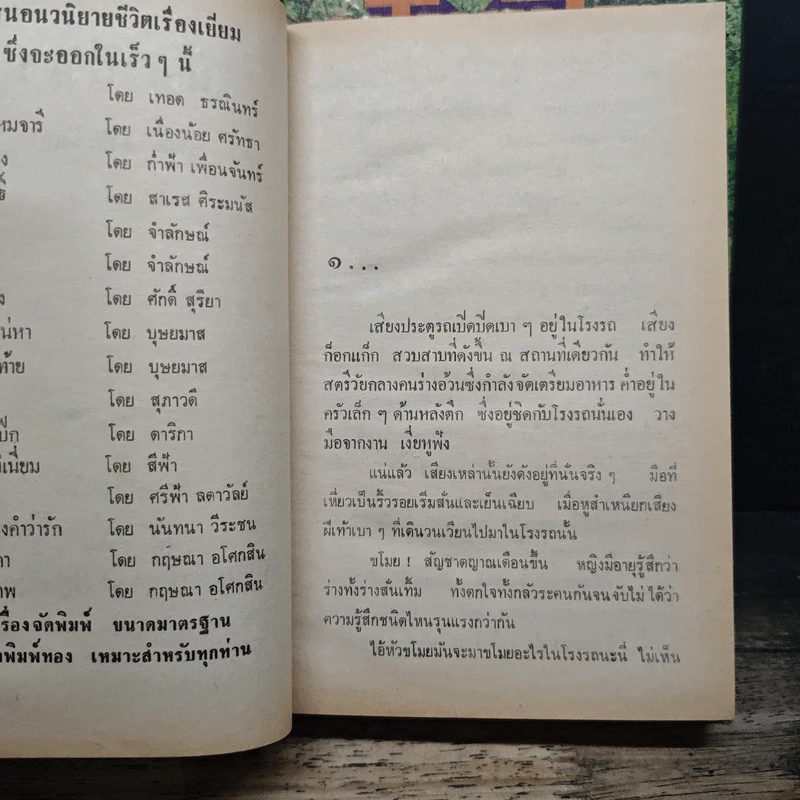 นอนวนิยายชีวิตเรื่องเยี่ยม
ซึ่งจะออกในเร็ว ๆ นี้
โดย เทอด ธรณินทร์
หมจารี โดย เนื่องน้อย ศรัทธา
ง โดย ก่ำฟ้า เพื่อนจันทร์
โดย สาเรส ศิระมนัส
โดย จำลักษณ์
โดย จำลักษณ์
ง โดย ศักดิ์ สุริยา
น่หา โดย บุษยมาส
ท้าย โดย บุษยมาส
โดย สุภาวดี
ปีก โดย ดาริกา
เนี่ยม โดย สีฟ้า
โดย ศรีฟ้า ลดาวัลย์
งคำว่ารัก โดย นันทนา วีระชน
า โดย กฤษณา อโศกสิน
าพ โดย กฤษณา อโศกสิน
รื่องจัดพิมพ์ ขนาดมาตรฐาน
พิมพ์ทอง เหมาะสำหรับทุกท่าน
๑ . . .
เสียงประตูรถเปิดปิดเบา ๆ อยู่ในโรงรถ เสียง
ก็อกแก็ก สวบสาบที่ดังขึ้น ณ สถานที่เดียวกัน ทำให้
สตรีวัยกลางคนร่างอ้วนซึ่งกำลังจัดเตรียมอาหาร ค่ำอยู่ใน
ครัวเล็ก ๆ ด้านหลังตึก ซึ่งอยู่ชิดกับโรงรถนั่นเอง วาง
มือจากงาน เงี่ยหูฟัง
แน่แล้ว เสียงเหล่านั้นยังดังอยู่ที่นั่นจริง ๆ มือที่
เหี่ยวเป็นริ้วรอยเริ่มสั่นและเย็นเฉียบ เมื่อหูสำเหนียกเสียง
ฝีเท้าเบา ๆ ที่เดินวนเวียนไปมาในโรงรถนั้น
ขโมย ! สัญชาตญาณเตือนขึ้น หญิงมีอายุรู้สึกว่า
ร่างทั้งร่างสั่นเทิ้ม ทั้งตกใจทั้งกลัวระคนกันจนจับไม่ ได้ว่า
ความรู้สึกชนิดไหนรุนแรงกว่ากัน
ไอ้หัวขโมยมันจะมาขโมยอะไรในโรงรถนะนี่ ไม่เห็น